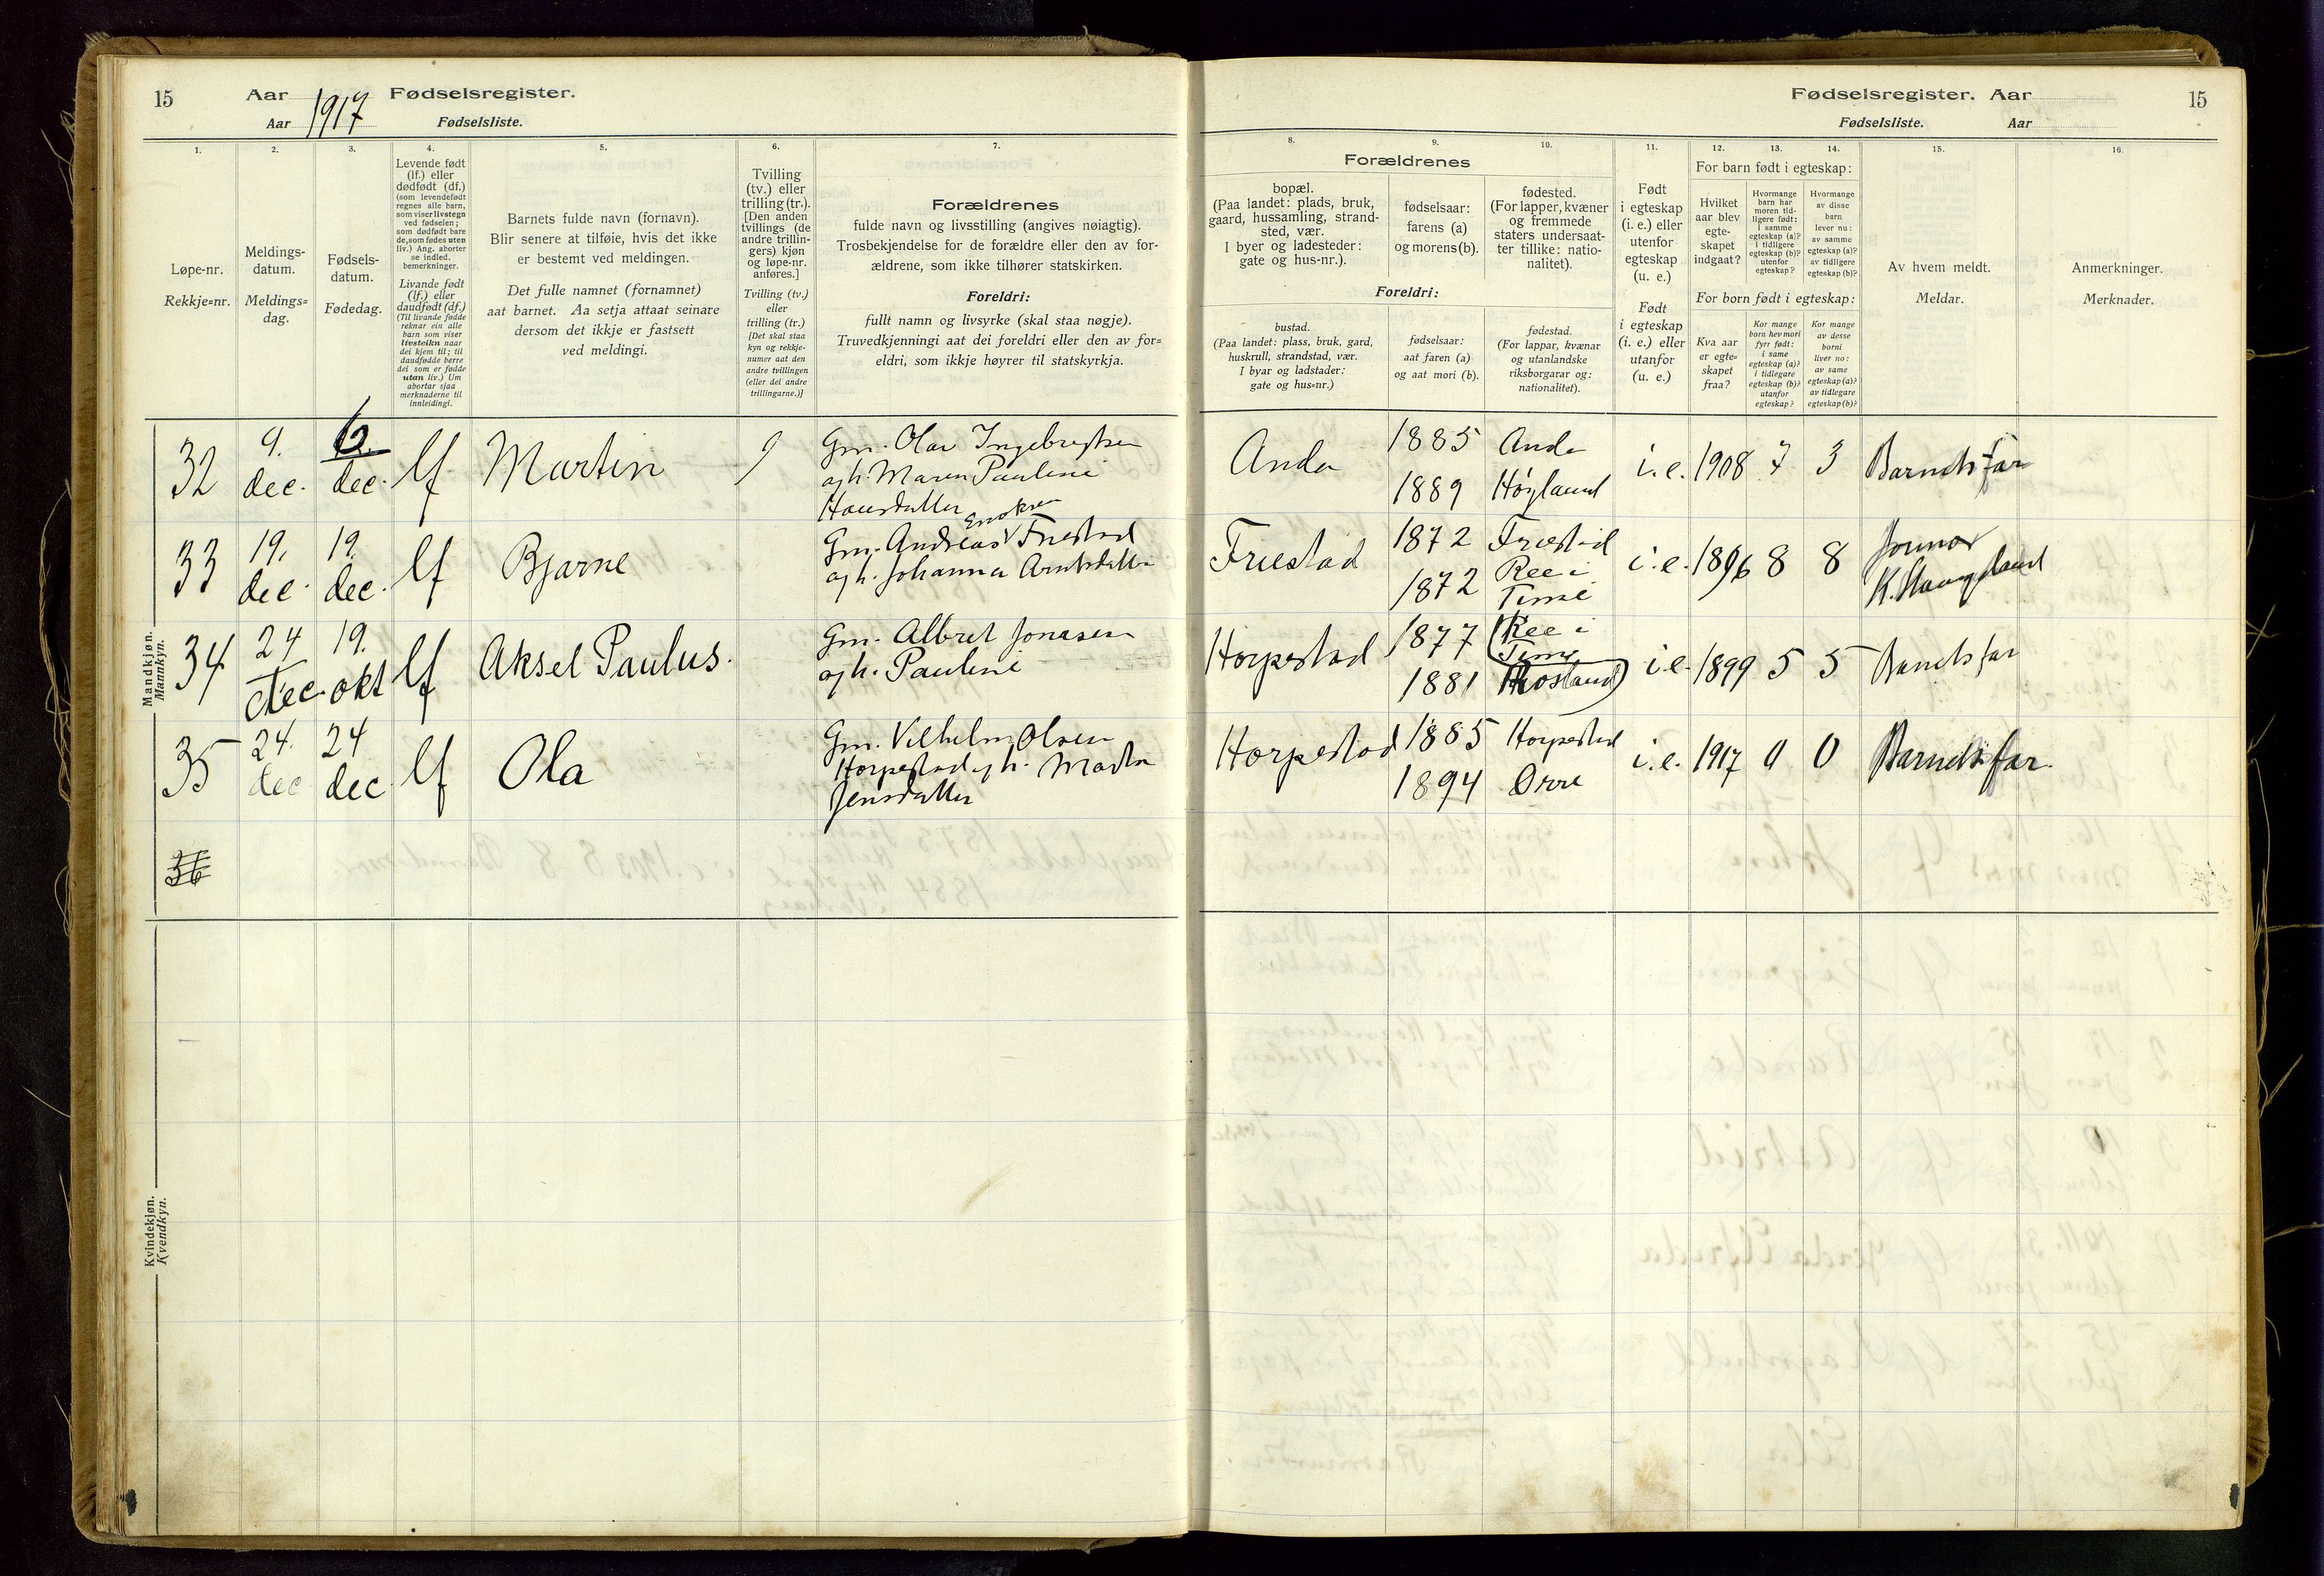 15 Aar 1917 Fødselsregister.
Aar Fødselsliste.
1.
Løpe-nr.
Rekkje=nr.
2.
Meldings-
datum.
Meldings=
dag.
3.
Fødsels-
datum.
Fødedag.
4.
Levende født
(lf.) eller
dødfødt (df.)
(som levendefødt
regnes alle barn,
som viser livstegn
ved fødselen;
som dødfødt bare
de, som fødes uten
liv.) Ang. aborter
se indled.
bemerkninger.
Livande født
(lf.) eller
daudfødt (df.)
(Til livande fødde
reknar ein alle
barn som viser
livsteikn naar
dei kjem til; til
daudfødde berre
dei som er fødde
utan liv.) Um
abortar sjaa
merknaderne til
innleidingi.
5.
Barnets fulde navn (fornavn).
Blir senere at tilføie, hvis det ikke
er bestemt ved meldingen.
Det fulle namnet (fornamnet)
aat barnet. Aa setja attaat seinare
dersom det ikkje er fastsett
ved meldingi.
6.
Tvilling
(tv.) eller
trilling (tr.).
[Den anden
tvillings (de
andre trillin-
gers) kjøn
og løpe-nr.
anføres.]
Tvilling (tv.)
eller
trilling (tr.)
[Det skal staa
kyn og rekkje-
numer aat den
andre tvillingen
(eller dei andre
trillingarne.)]
7.
Forældrenes
fulde navn og livsstilling (angives nøiagtig).
Trosbekjendelse for de forældre eller den av for-
ældrene, som ikke tilhører statskirken.
Foreldri:
fullt namn og livsyrke (skal staa nøgje).
Truvedkjenningi aat dei foreldri eller den av for=
eldri, som ikkje høyrer til statskyrkja.
Fødselsregister. Aar 15
Fødselsliste. Aar
Forældrenes
8.
bopæl.
(Paa landet: plads, bruk,
gaard, hussamling, strand-
sted, vær.
I byer og ladesteder:
gate og hus-nr.).
9.
fødselsaar:
farens (a)
og morens (b).
10.
fødested.
(For lapper, kvæner
og fremmede
staters undersaat-
ter tillike: natio-
nalitet).
Foreldri:
bustad.
(Paa landet: plass, bruk, gard,
huskrull, strandstad, vær.
I byar og ladstader:
gate og hus=nr.)
fødselsaar:
aat faren (a)
og aat mori (b).
fødestad.
(For lappar, kvænar
og utanlandske
riksborgarar og:
nationalitet).
11.
Født
i egteskap
(i. e.) eller
utenfor
egteskap
(u. e.)
Født
i egteskap
(i. e.) eller
utanfor
(u. e.)
12. 13. 14.
For barn født i egteskap:
Hvilket
aar blev
egte-
skapet
indgaat?
Hvormange
barn har
moren tid-
ligere født:
i samme
egteskap (a)?
i tidligere
egteskap (b)?
utenfor
egteskap?
Hvormange
av disse
barn
lever nu:
av samme
egteskap (a)?
av tidligere
egteskap (b)?
For born født i egteskap:
Kva aar
er egte=
skapet
fraa?
Kor mange
born hev mori
fyrr født:
i same
egteskap (a)?
i tidlegare
egteskap (b)?
utanfor
egteskap?
Kor mange
av desse
borni
liver no:
av same
egteskap (a)?
av tidlegare
egteskap (b)?
15.
Av hvem meldt.
Meldar.
16.
Anmerkninger.
Merknader.
Mandkjøn.
Mannkyn.
32 9. dec. 6. dec. lf Martin
Gm. Olav Ingebregtsen
og h. Maren Pauline
Hansdatter
Anda 1885 Anda
1889 Høyland
i.e. 1908 7 3 Barnets far
33 19. dec. 19. dec. lf Bjarne
Gm. Andreas Enoksen Friestad
og h. Johanna Arntsdatter
Friestad 1872 Friestad
1872 Ree i
Time
i.e. 1896 8 8 Jormor
K. Haugland
34 24 dec. 19. okt lf Aksel Paulus.
Gm. Albret Jonasen
og h. Pauline
Horpestad 1877 Ree i
Time
1881
i.e. 1899 5 5 Barnets far
35 24. dec 24 dec lf Ola
Gm. Vilhelm Olsen
Horpestad og h. Marta
Jensdatter
Horpestad 1885 Horpestad
1894 Orre
i.e. 1917 0 0 Barnets far.
36
Kvindekjøn.
Kvendkyn.